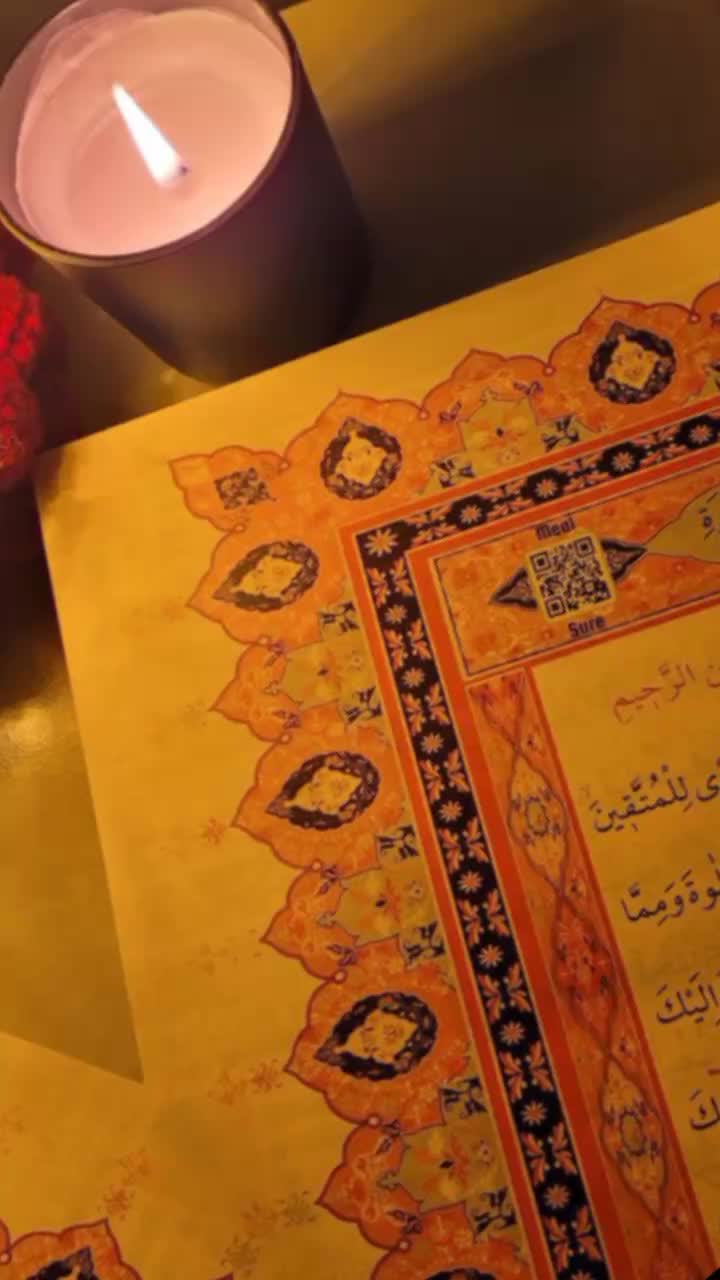 Meal
Sure
الرَّحِيمِ
لِلْمُتَّقِينَ
وَمِمَّا
إِلَيْكَ